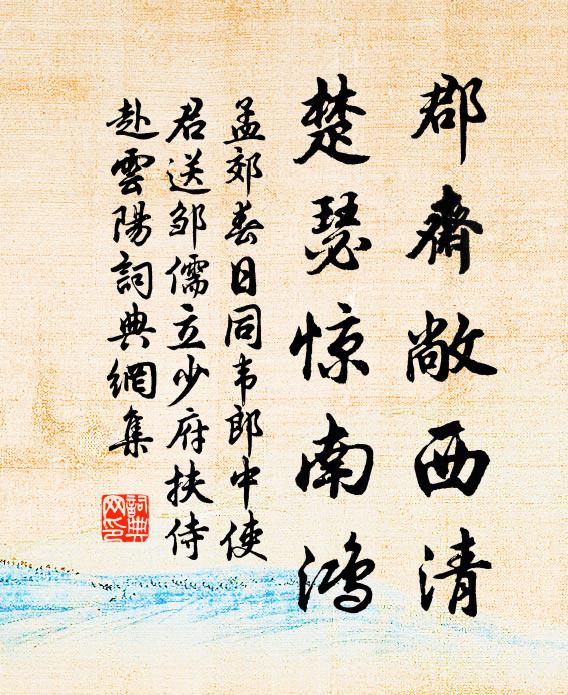 郡齋敞西清
楚瑟惊南鸿
孟郊春日同韦郎中使
君送邹儒立少府扶侍
赴雲陽詞典網集
詞典网印